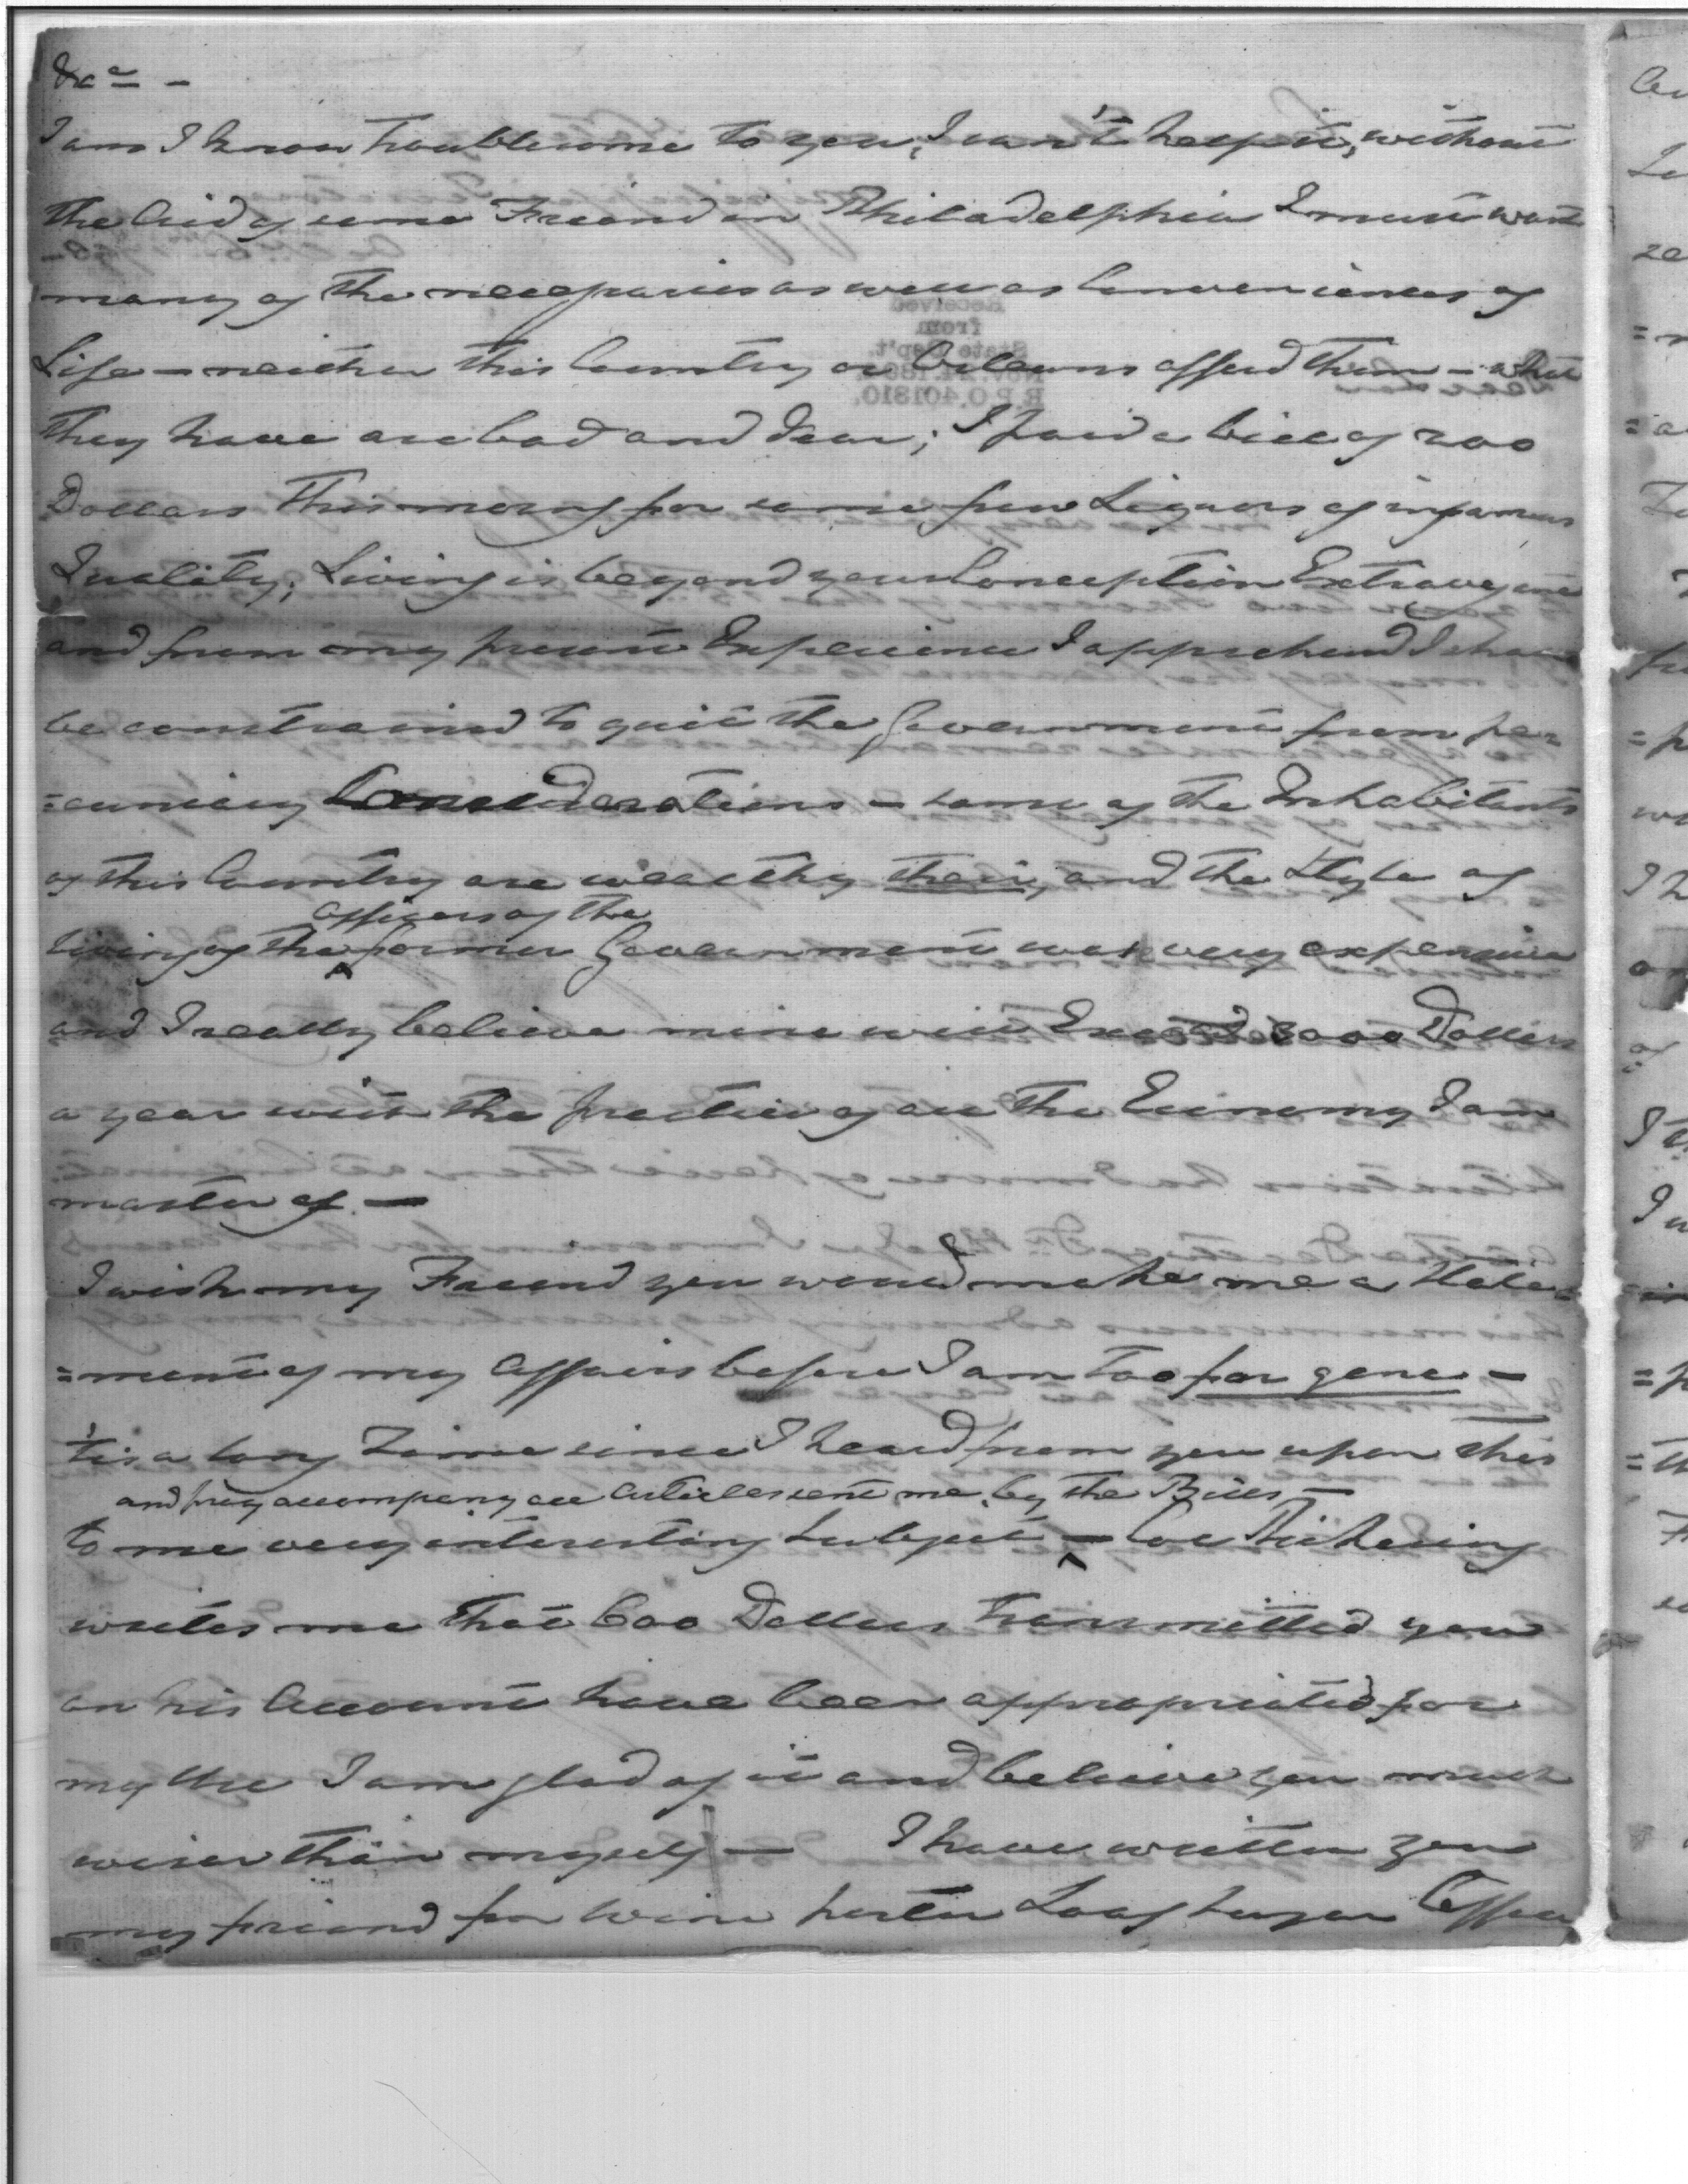 &ca —
I am I know troublesome to you, I can't help it, without
the aid of some Friend in Philadelphia I must want
many of the necessaries as well as Conveniences of
Life — neither this Country or Orleans afford them — what
they have are bad and dear; I paid a bill of 200
Dollars this morng for some few Liquors of infamous
Quality; Living is beyond your Conception Extravagant
and from my present Experience I apprehend I shall
be constrained to quit the Government from pe
=cuniary Considerations — some of the Inhabitants
of this Country are wealthy and the Style of
officers of the
living of the former Government was very expensive
and I really believe mine will Exceed 3000 Dollars
a year with the practice of all the Economy I am
master of. —
I wish my Friend you would make me a State
=ment of my Affairs before I am too far gone —
'tis a long Time since I heard from you upon this
and pray accompany all Articles sent me by the Bills —
to me very interesting subject — Col Pickering
writes me that 600 Dollars transmitted you
on his Account have been appropriated for
my Use I am glad of it and believe you much
wiser than myself — I have written you
my friend for wine porter Loaf Sugar Coffee